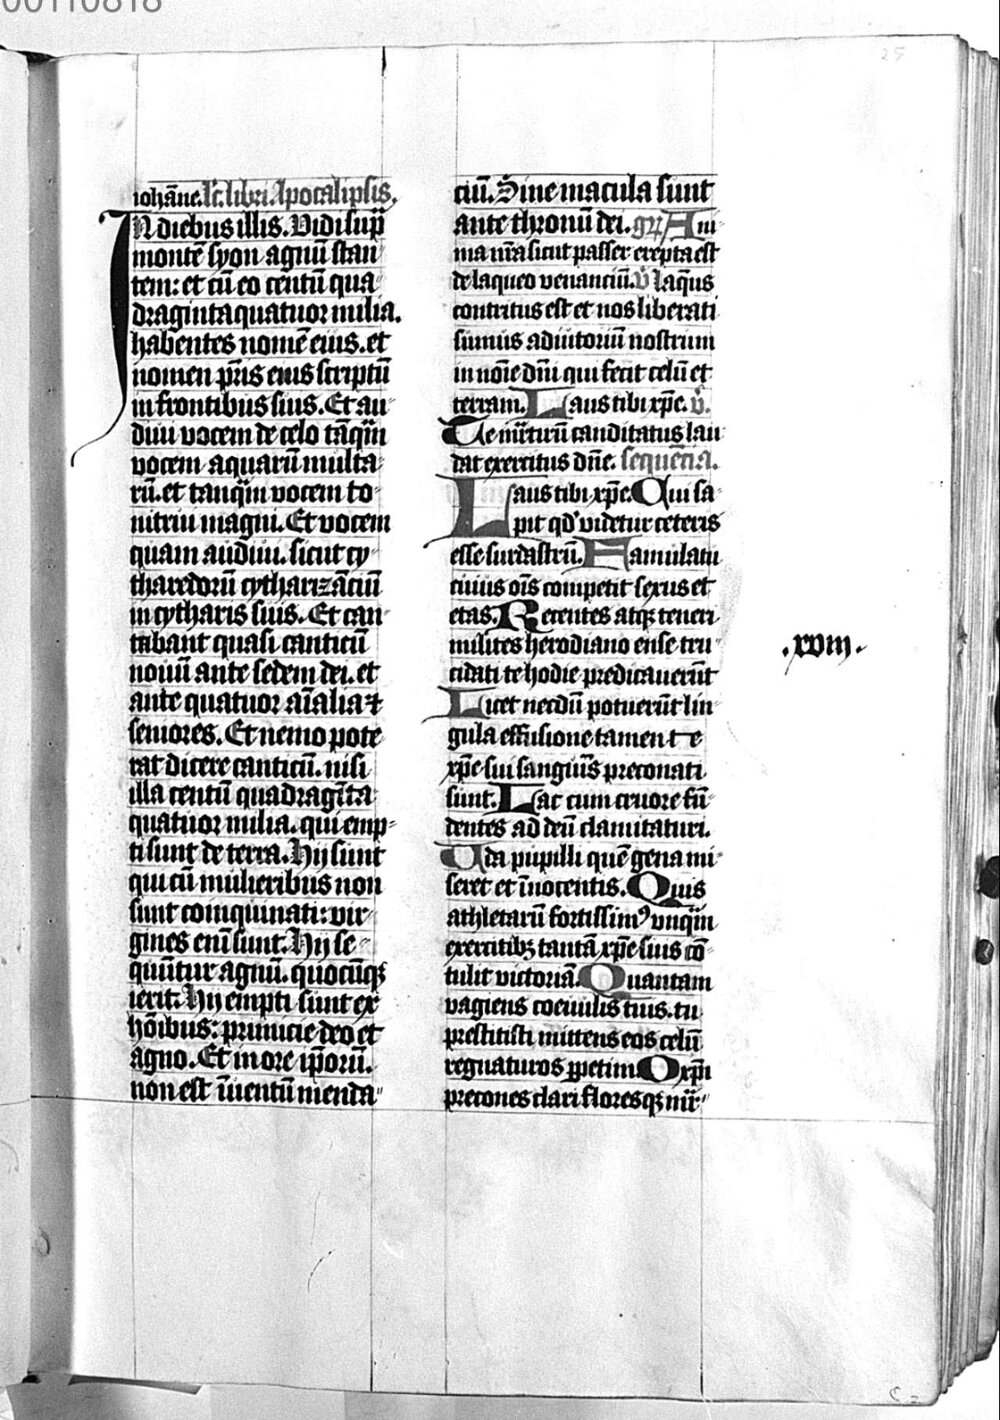 00110818
25
iohāne. lc̄. libri. Apocalipsis.
IN diebus illis. Vidi sup̄
montē syon agnū stan
tem: et cū eo centū qua
draginta quatuor milia.
habentes nomē eius. et
nomen pr̄is eius scriptū
in frontibus suis. Et au
diui vocem de celo tāq̄m
vocem aquarū multa
rū. et tanq̄m vocem to
nitrui magni. Et vocem
quam audiui. sicut cy
tharedorū cytharizāciū
in cytharis suis. Et can
tabant quasi canticū
nouū ante sedem dei. et
ante quatuor aīalia ⁊
seniores. Et nemo pote
rat dicere canticū. nisi
illa centū quadragīta
quatuor milia. qui emp
ti sunt de terra. Hij sunt
qui cū mulieribus non
sunt coinquinati: vir
gines enī sunt. Hij se
quūtur agnū. quocūqꝫ
ierit: Hij empti sunt ex
hōibus: primicie deo et
agno. Et in ore ip̄orū.
non est īuentū menda
ciū. Sine macula sunt
ante thronū dei. gr̄ Ani
ma nr̄a sicut passer erepta est
de laqueo venanciū. v̄ laq̄us
contritus est et nos liberati
sumus adiutoriū nostrum
in noīe dn̄i qui fecit celū et
terram. Laus tibi xp̄e. v̄.
Te mr̄tirū canditatus lau
dat exercitus dn̄e. sequēcia.
Laus tibi xp̄e. Qui sa
pit qd' videtur ceteris
esse surdastrū. Famulatu
cuius oīs competit sexus et
etas. Recentes atqꝫ teneri
milites herodiano ense tru
cidati te hodie predicauerūt
Licet necdū potuerūt lin
gula effusione tamen te
xp̄e sui sanguīs preconati
sunt. Lac cum cruore fū
dentes ad deū clamitaturi.
Oda pupilli quē gena mi
seret et īnocentis. Quis
athletarū fortissimꝰ vnq̄m
exercitibꝫ tantā xp̄e suis cō
tulit victoriā. Quantam
vagiens coeuulis tuis. tu
prestitisti mittens eos celū
regnaturos ꝑpetim O xp̄i
precones clari floresqꝫ mr̄
.xviij.